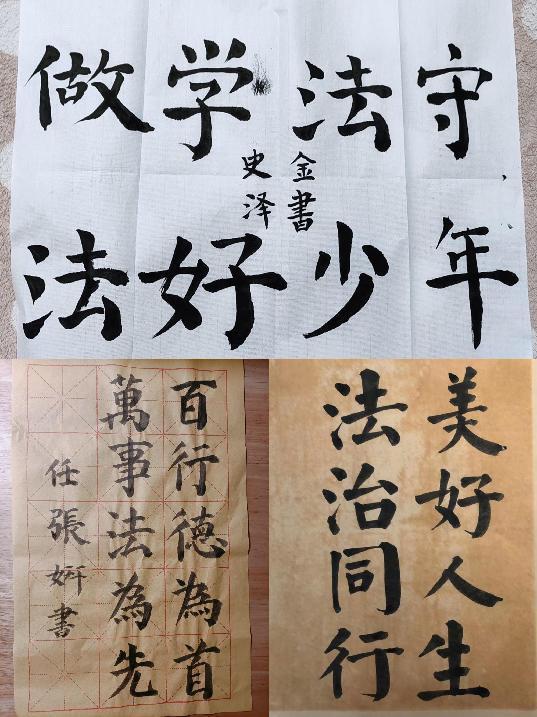 做学法守
史泽
金書
法好少年
百行德為首
萬事法為先
任張妍書
美好人生
法治同行